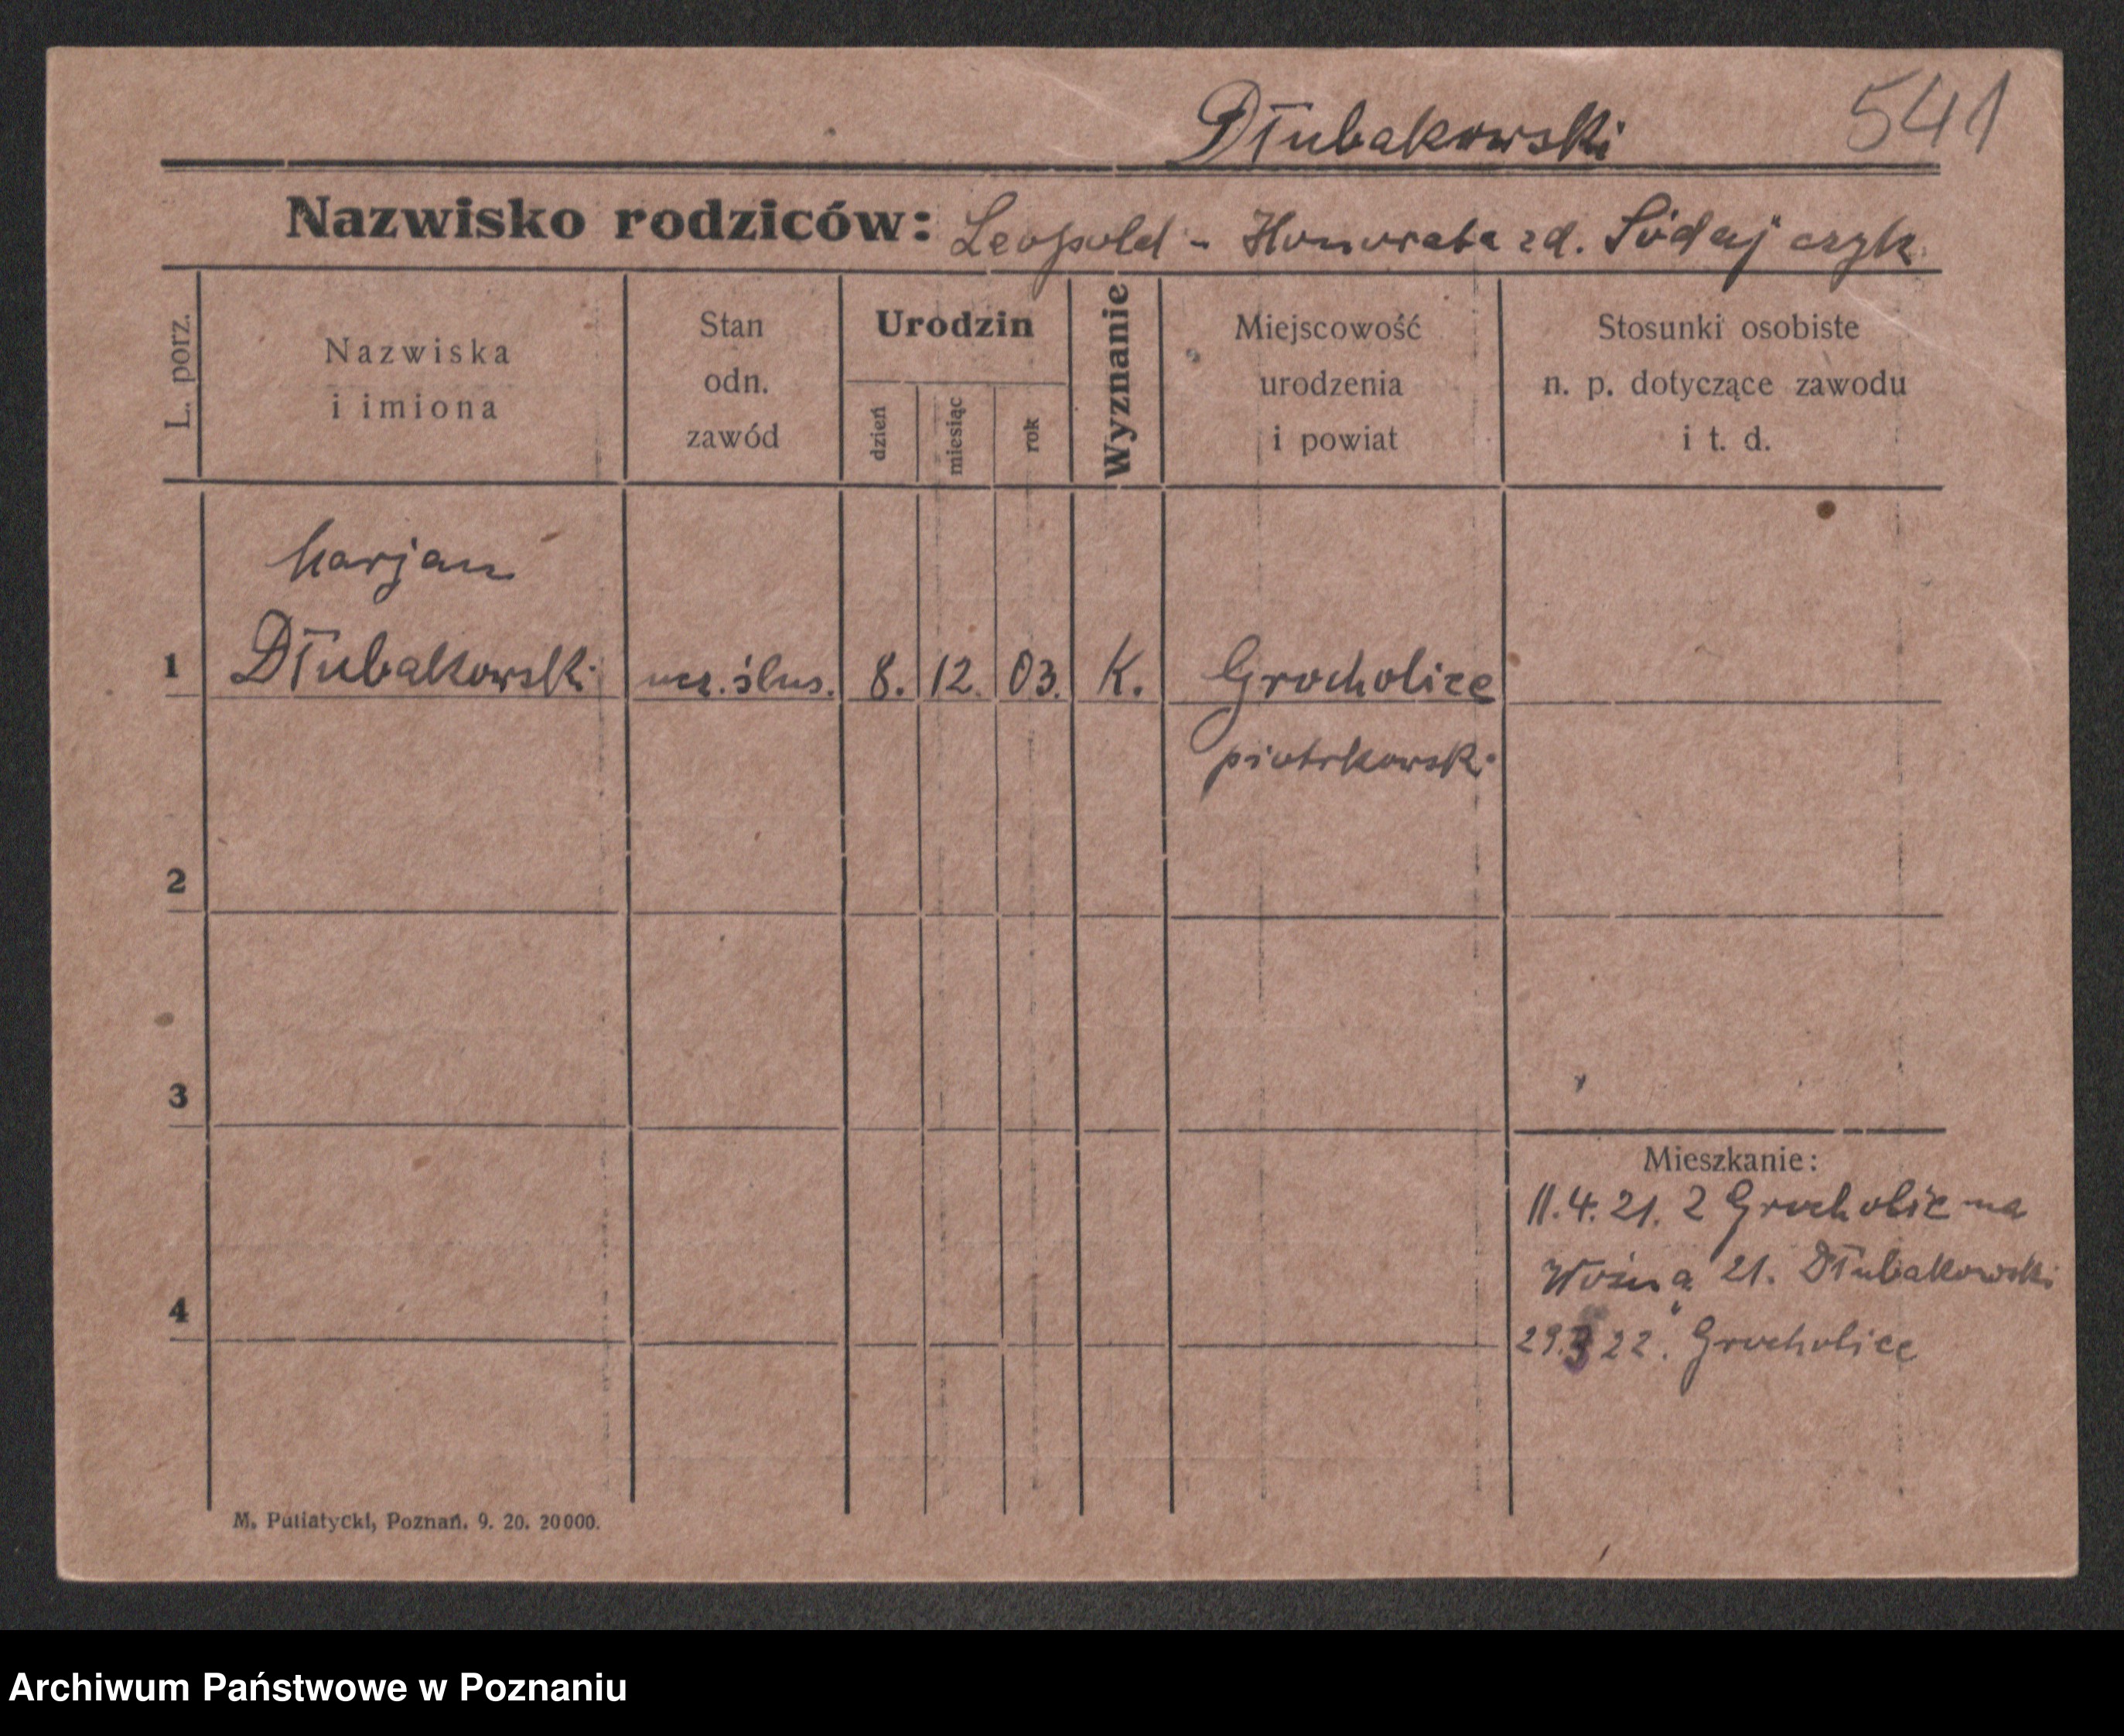 Dłubakowski 541
Nazwisko rodziców: Leopold - Honorata zd.
L. porz.
Nazwiska
i imiona
Stan
odn.
zawód
Urodzin
dzień
miesiąc
rok
Wyznanie
Miejscowość
urodzenia
i powiat
Stosunki osobiste
n. p. dotyczące zawodu
i t. d.
Marjan
1 Dłubakowski ucz. ślus. 8. 12. 03. K. Grocholice
piotrkowski
2
3
4
Mieszkanie:
11.4.21. z Grocholic na
Woźną 21. Dłubakowski
29.3 22. Grocholice
M. Putiatycki, Poznań. 9. 20. 20000.
Archiwum Państwowe w Poznaniu